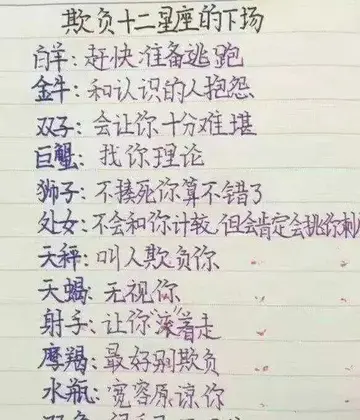 欺负十二星座的下场
白羊：赶快准备逃跑
金牛：和认识的人抱怨
双子：会让你十分难堪
巨蟹：找你理论
狮子：不揍死你算不错了
处女：不会和你计较，但会肯定会挑你刺儿
天秤：叫人欺负你
天蝎：无视你
射手：让你滚着走
摩羯：最好别欺负
水瓶：宽容原谅你